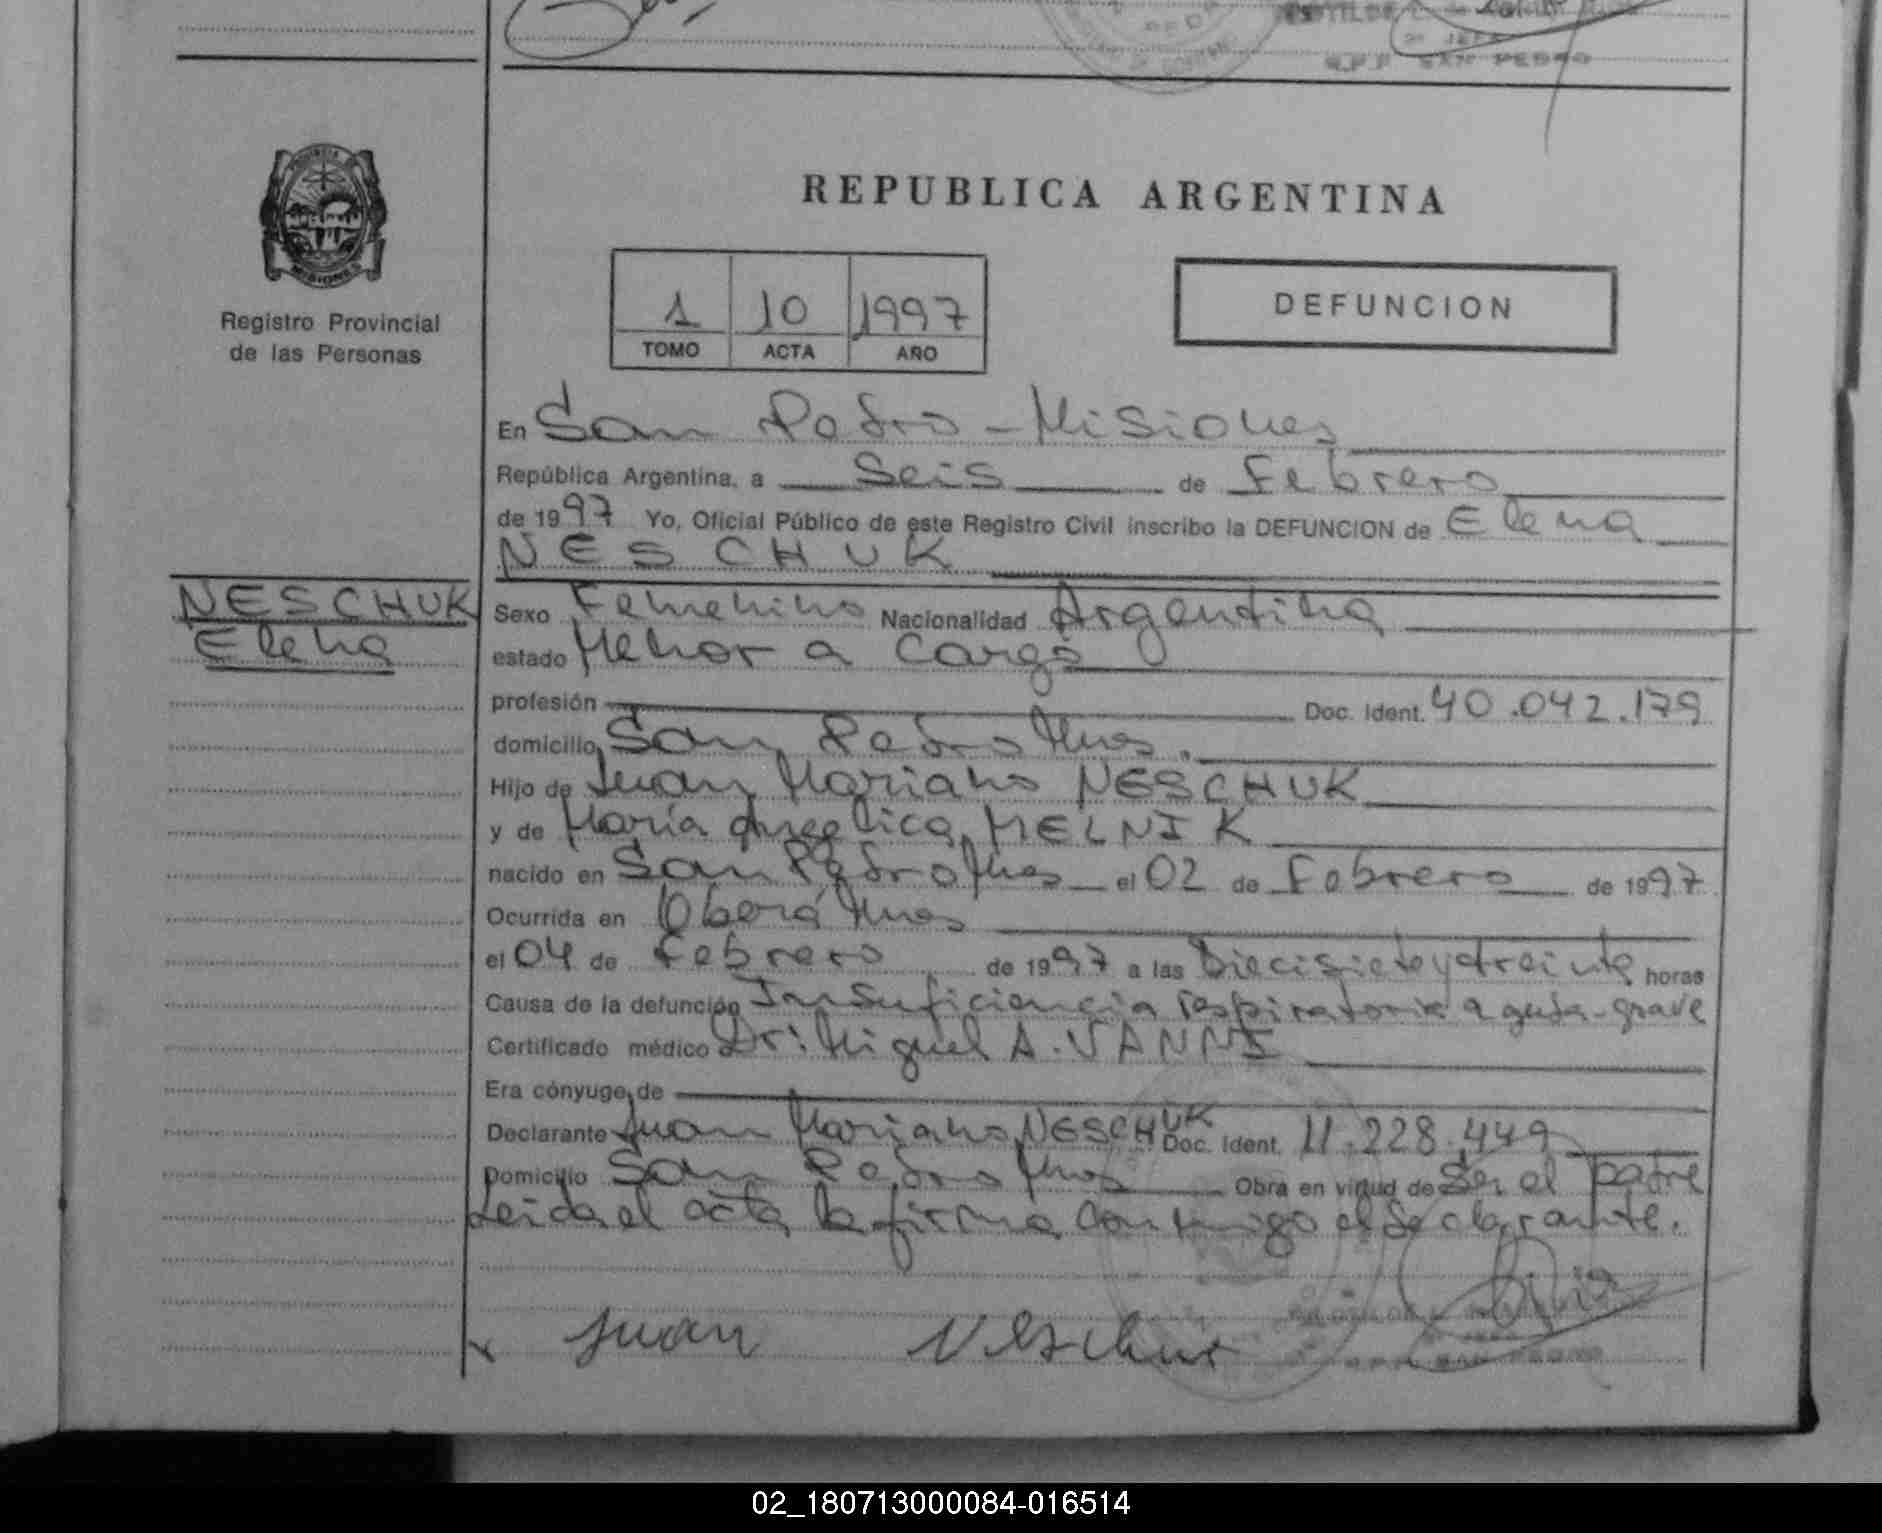 SAN PEDRO
REPUBLICA ARGENTINA
PROVINCIA DE
MISIONES
Registro Provincial
de las Personas
1 10 1997
TOMO ACTA AÑO
DEFUNCION
En San Pedro - Misiones
República Argentina, a Seis de Febrero
de 1997 Yo, Oficial Público de este Registro Civil inscribo la DEFUNCION de Elena
NESCHUK
NESCHUK
Elena
Sexo Femenino Nacionalidad Argentina
estado Menor a cargo
profesión Doc. Ident. 40.042.179
domicilio San Pedro Mnes.
Hijo de Juan Mariano NESCHUK
y de María Angelica MELNIK
nacido en San Pedro Mnes el 02 de Febrero de 1997
Ocurrida en Oberá Mnes
el 04 de Febrero de 1997 a las Diecisiete y treinta horas
Causa de la defunción Insuficiencia respiratoria aguda-grave
Certificado médico Dr: Miguel A. VANNI
Era cónyuge de
Declarante Juan Mariano NESCHUK Doc. Ident. 11.228.449
Domicilio San Pedro Mnes Obra en virtud de Ser el padre
Leida el acta la firma conmigo el declarante.
x Juan Neschuk
SAN PEDRO
02_180713000084-016514